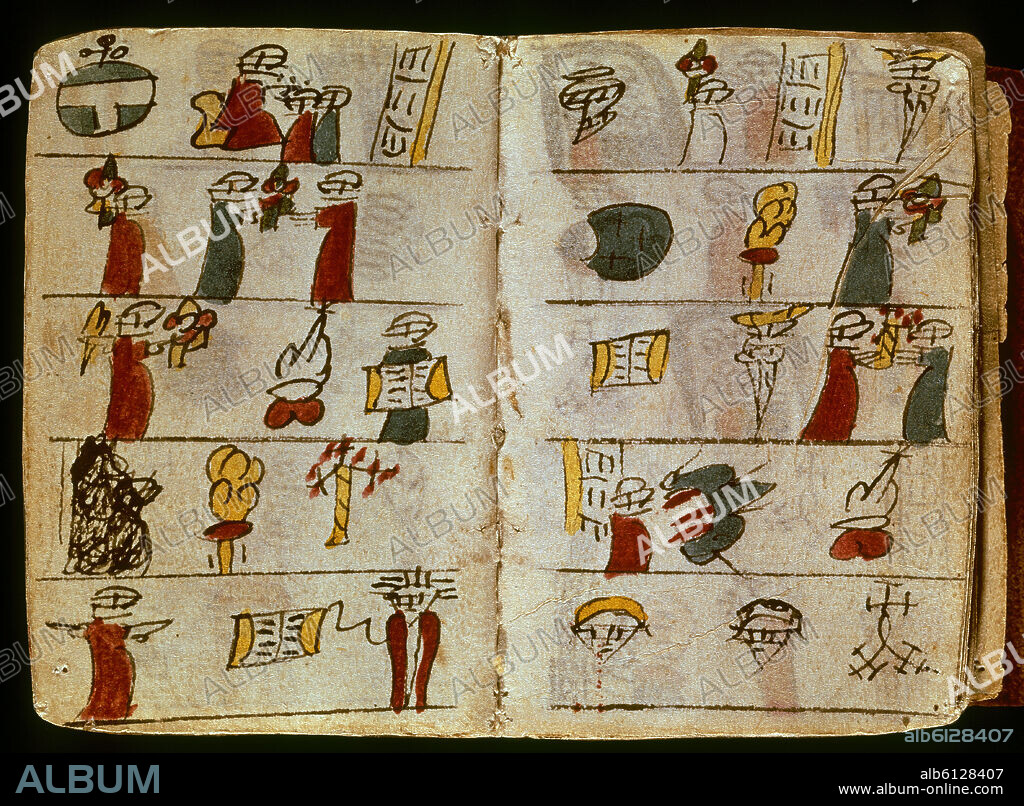 alb6128407
ALBUM
alb6128407
www.album-online.com